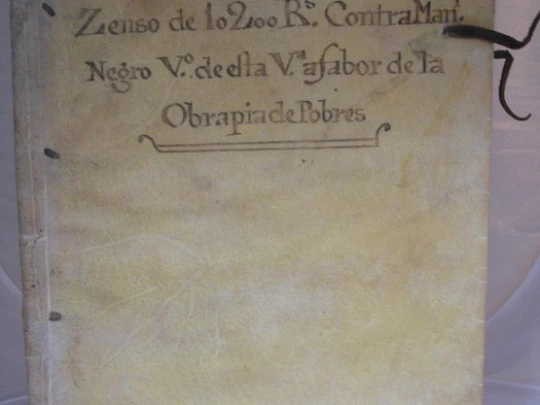 Zenso de 10200 Rs. Contra Manl.
Negro Vo. de esta Va. a fabor de la
Obrapia de Pobres